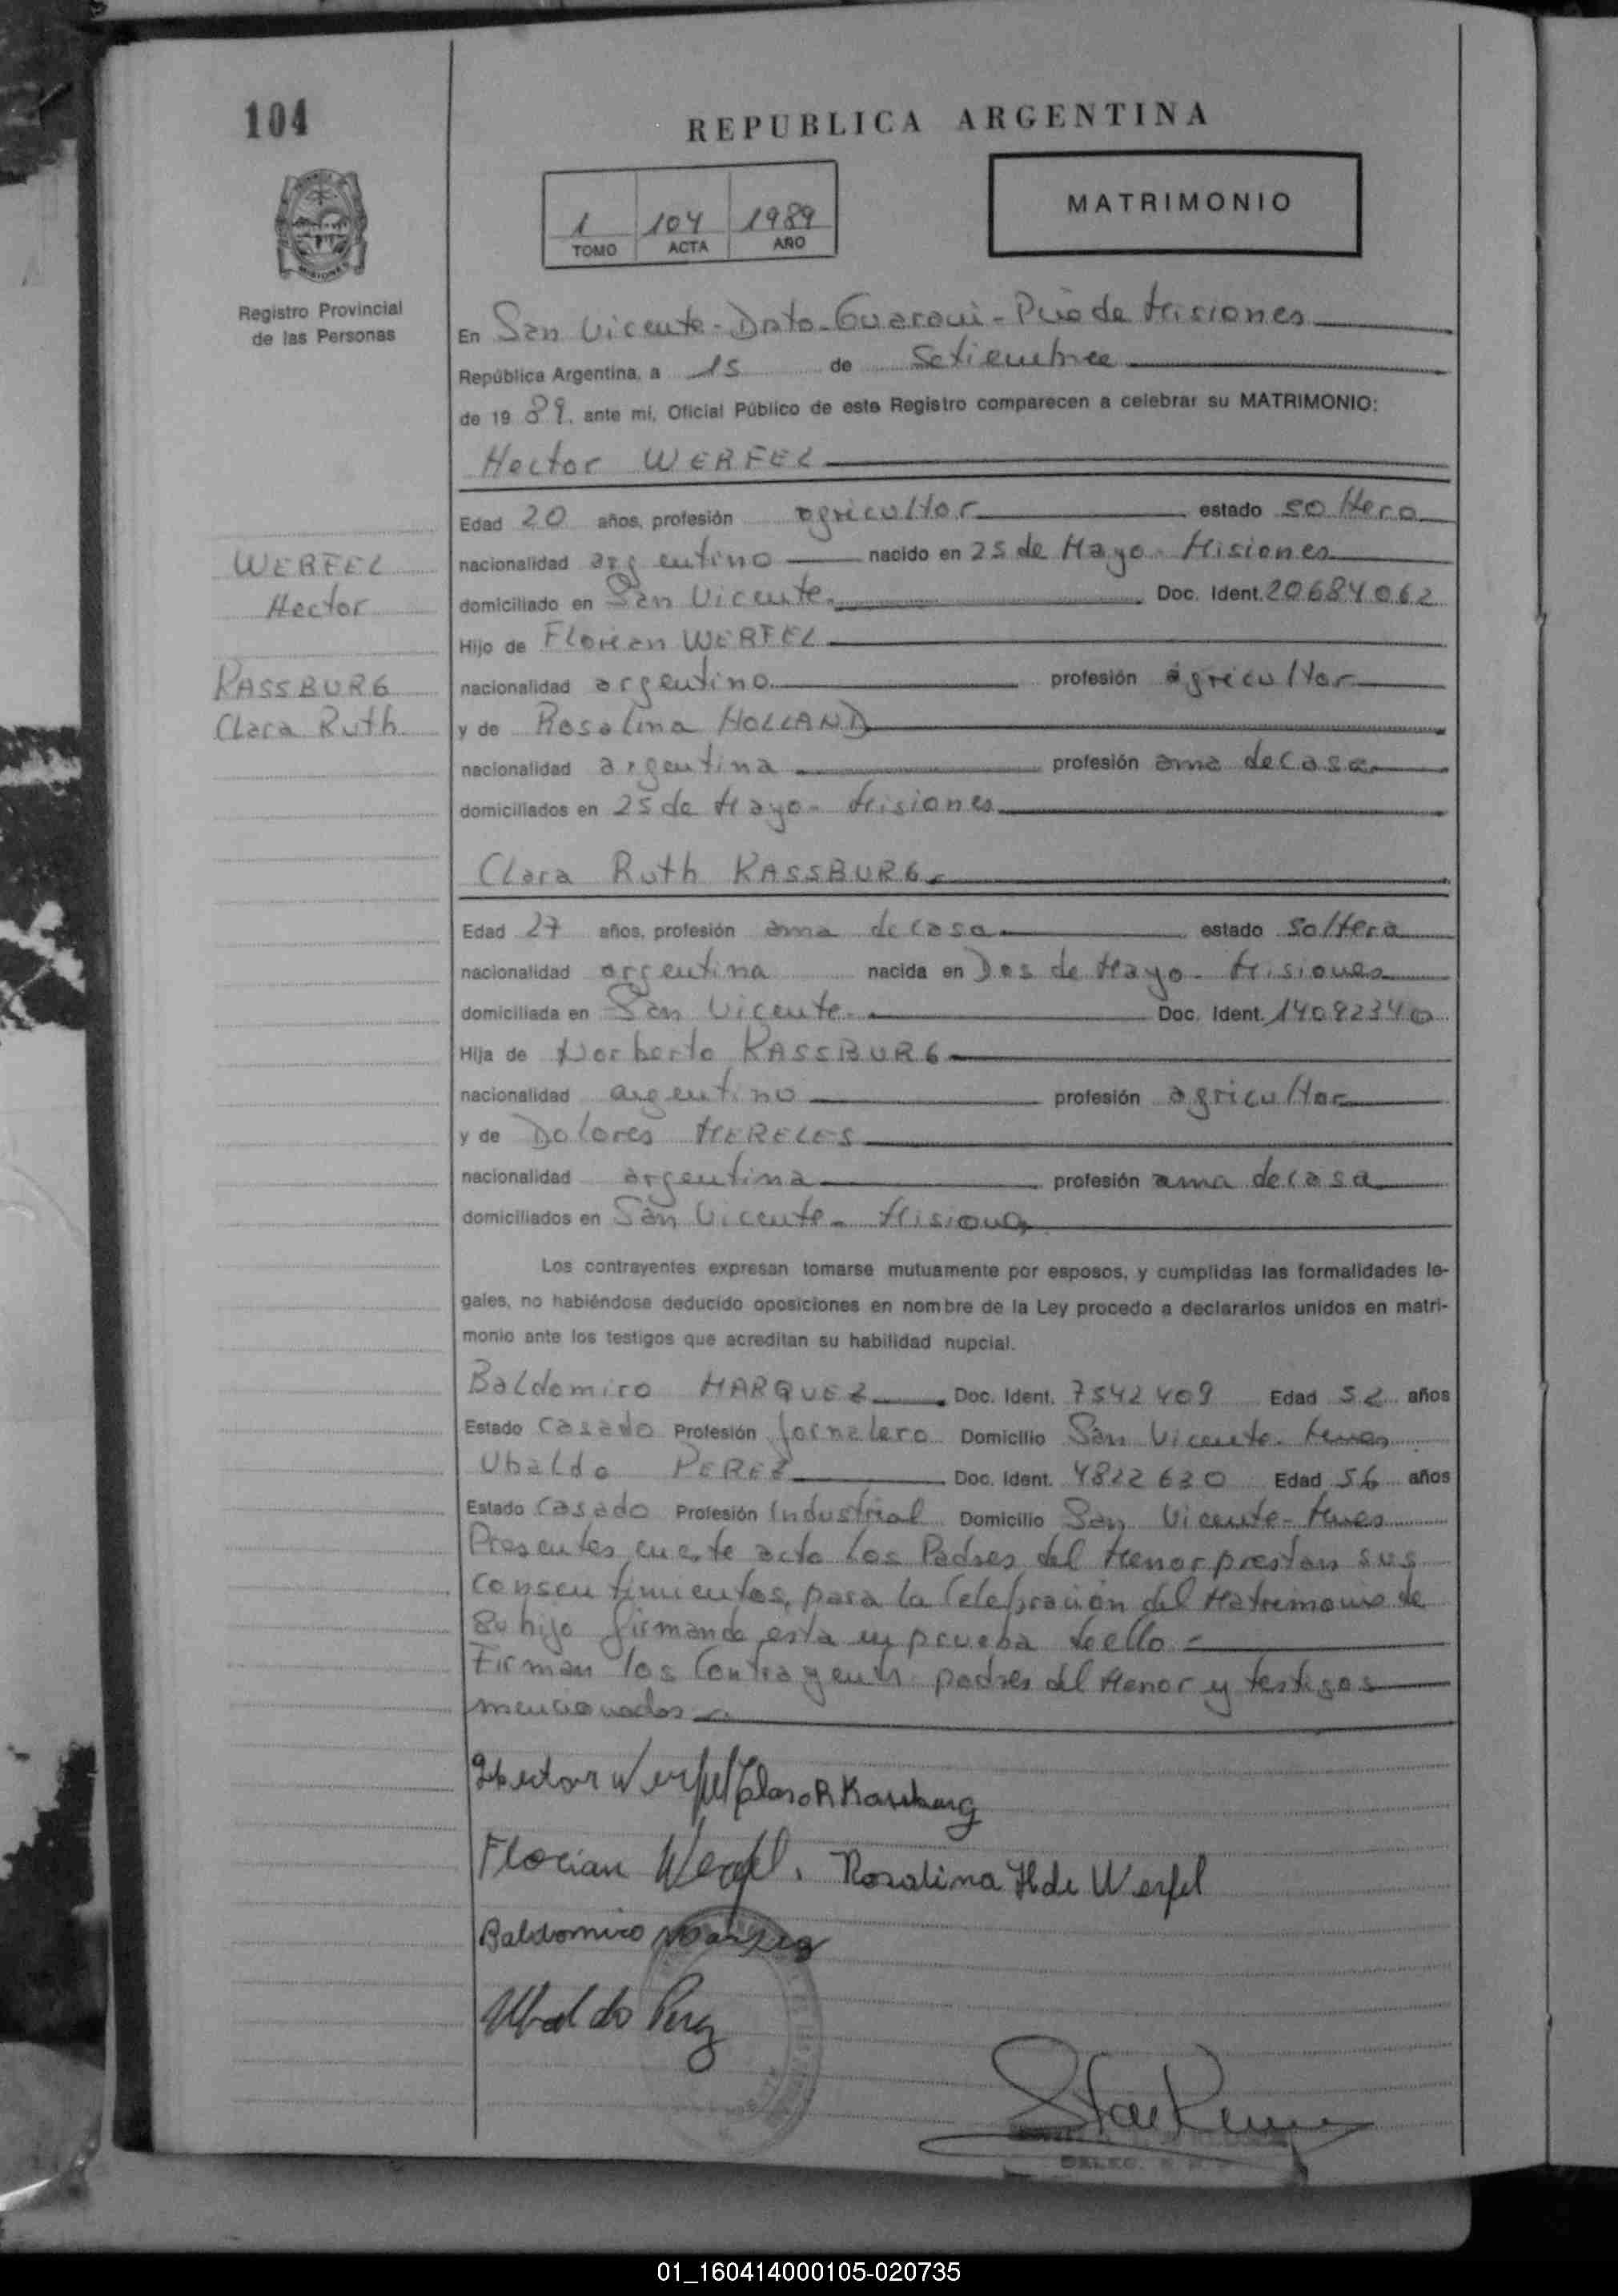 104
REPUBLICA ARGENTINA
1 104 1989
TOMO ACTA AÑO
MATRIMONIO
MISIONES
Registro Provincial
de las Personas
En San Vicente - Dpto. Guarani - Pcia de Misiones
República Argentina, a 15 de Setiembre
de 19 89, ante mí, Oficial Público de este Registro comparecen a celebrar su MATRIMONIO:
Hector WERFEL
Edad 20 años, profesión agricultor estado soltero
nacionalidad argentino nacido en 25 de Mayo - Misiones
domiciliado en San Vicente. Doc. Ident. 20684062
Hijo de Florian WERFEL
nacionalidad argentino profesión agricultor
y de Rosalina HOLLAND
nacionalidad argentina profesión ama de casa
domiciliados en 25 de Mayo - Misiones
WERFEL
Hector
KASSBURG
Clara Ruth
Clara Ruth KASSBURG
Edad 27 años, profesión ama de casa estado soltera
nacionalidad argentina nacida en Dos de Mayo - Misiones
domiciliada en San Vicente. Doc. Ident. 14092340
Hija de Norberto KASSBURG
nacionalidad argentino profesión agricultor
y de Dolores MERELES
nacionalidad argentina profesión ama de casa
domiciliados en San Vicente - Misiones
Los contrayentes expresan tomarse mutuamente por esposos, y cumplidas las formalidades le-
gales, no habiéndose deducido oposiciones en nombre de la Ley procedo a declararlos unidos en matri-
monio ante los testigos que acreditan su habilidad nupcial.
Baldomiro MARQUEZ Doc. Ident. 7542409 Edad 52 años
Estado Casado Profesión Jornalero Domicilio San Vicente - Mnes
Ubaldo PEREZ Doc. Ident. 4822630 Edad 56 años
Estado Casado Profesión Industrial Domicilio San Vicente - Mnes
Presentes en este acto los Padres del Menor prestan sus
consentimientos, para la Celebración del Matrimonio de
su hijo firmando esta en prueba de ello -
Firman los Contrayentes padres del Menor y testigos
mencionados
Hector Werfel Clara R Kassburg
Florian Werfel. Rosalina H de Werfel
Baldomiro Marquez
Ubaldo Perez
DELEG.
01_160414000105-020735